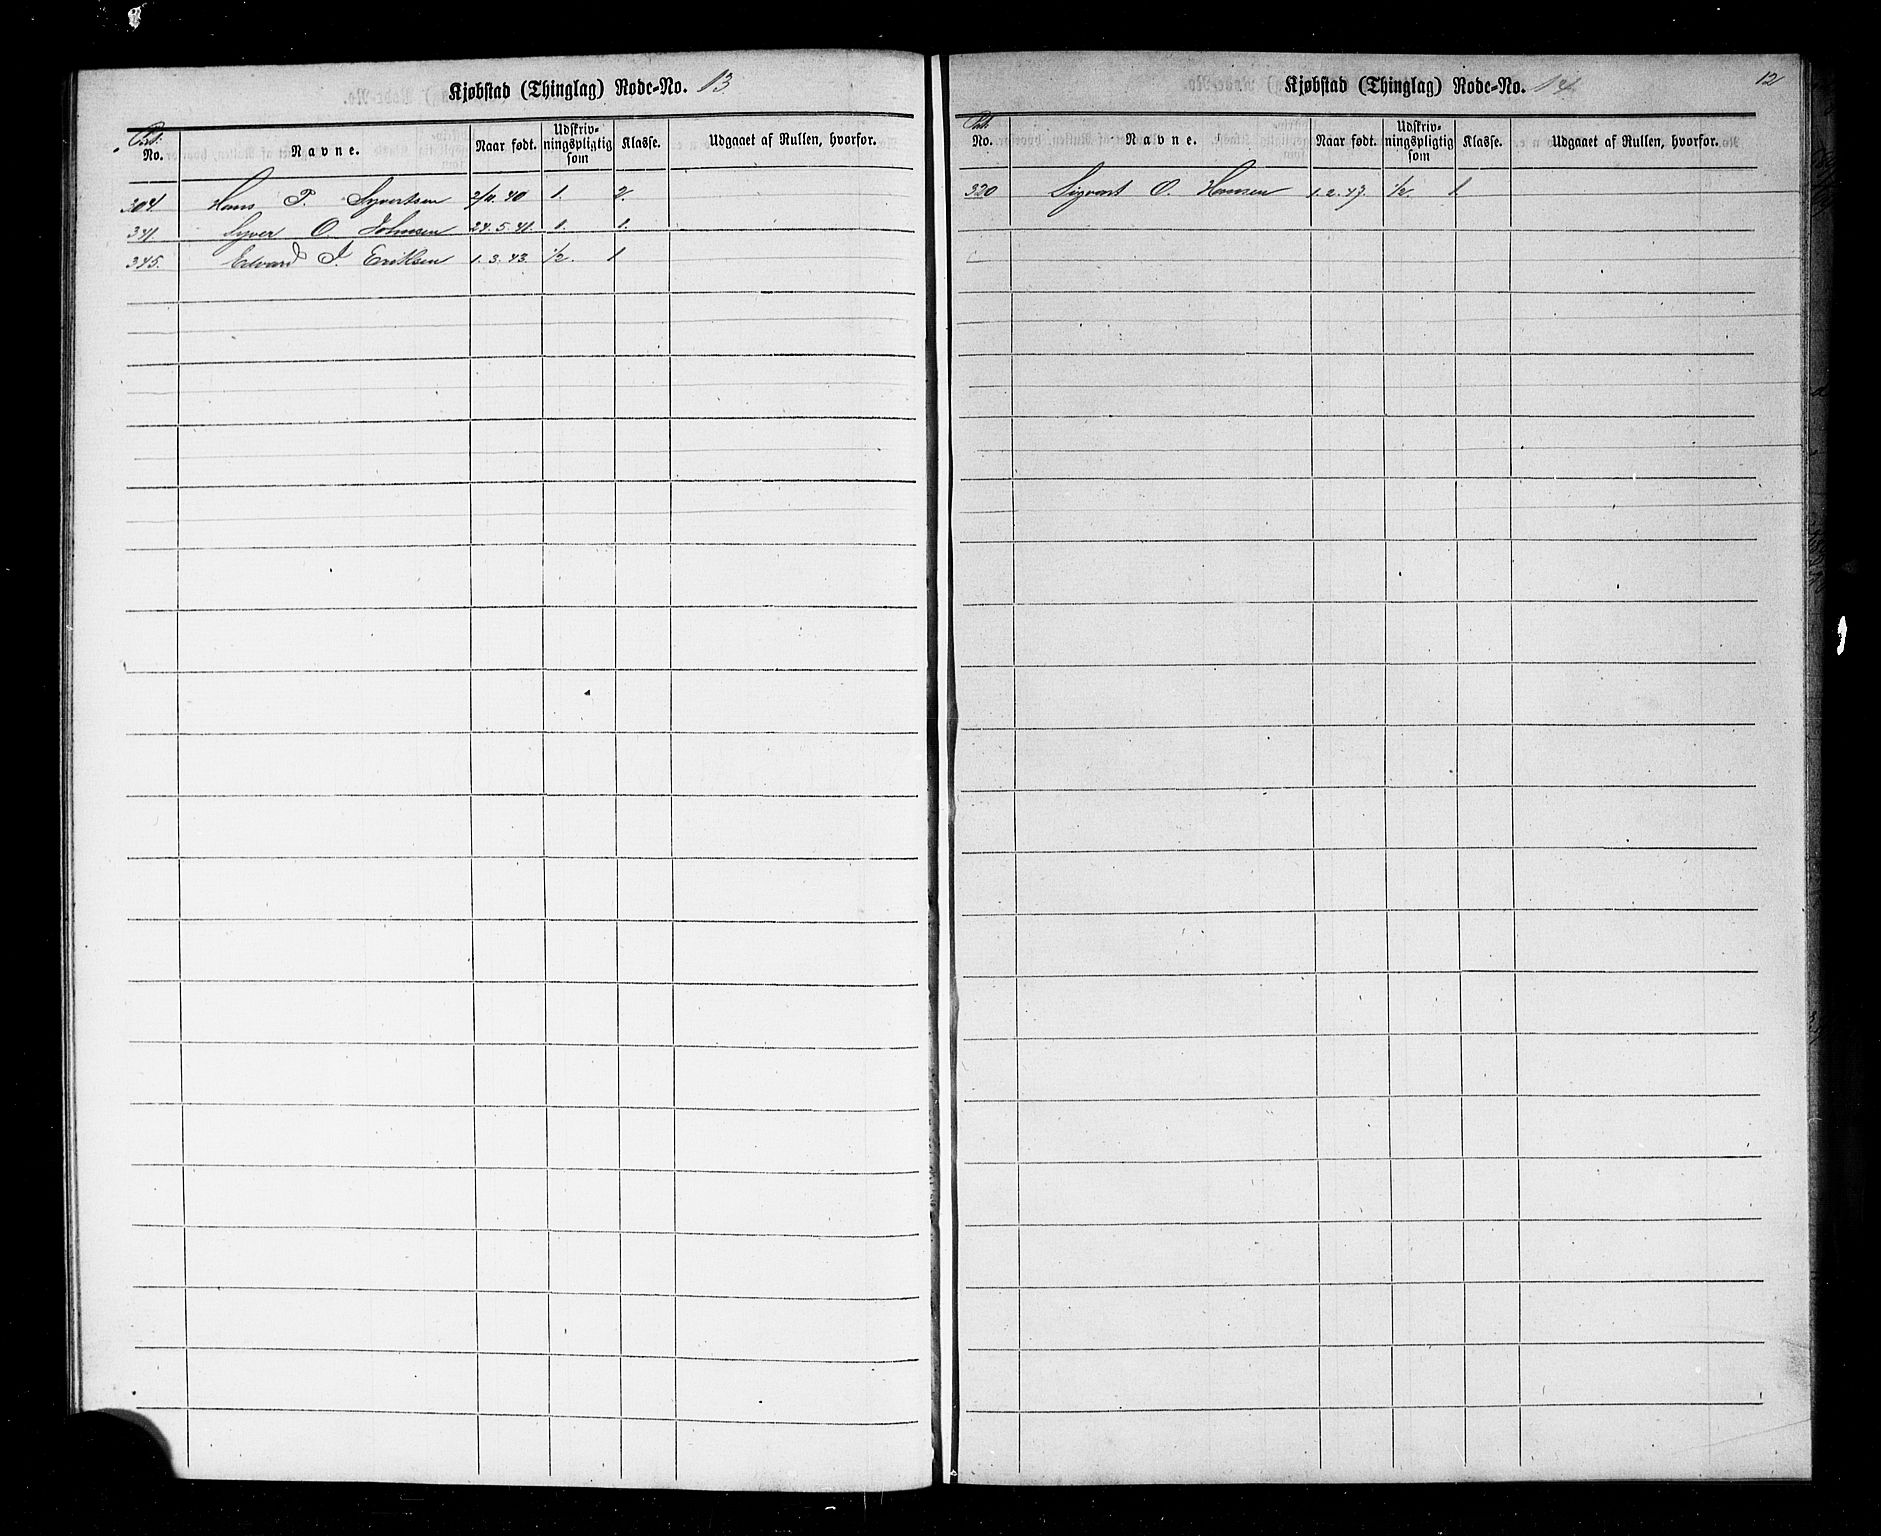 Kjøbstad (Thinglag) Rode-No. 13
No. Navne. Naar født. Udskriv-ningspligtig som Klasse. Udgaaet af Rullen, hvorfor.
304 Hans P. Syvertsen 2/11. 40 1. 2.
341. Syver O. Johnsen 24. 5. 41. 1. 1.
345. Edvard J. Eriksen 1. 3. 43. 1/2. 1
Kjøbstad (Thinglag) Rode-No. 14 12
No. Navne. Naar født. Udskriv-ningspligtig som Klasse. Udgaaet af Rullen, hvorfor.
320 Sigvart O. Hansen 1. 2. 47. 1/2. 1.